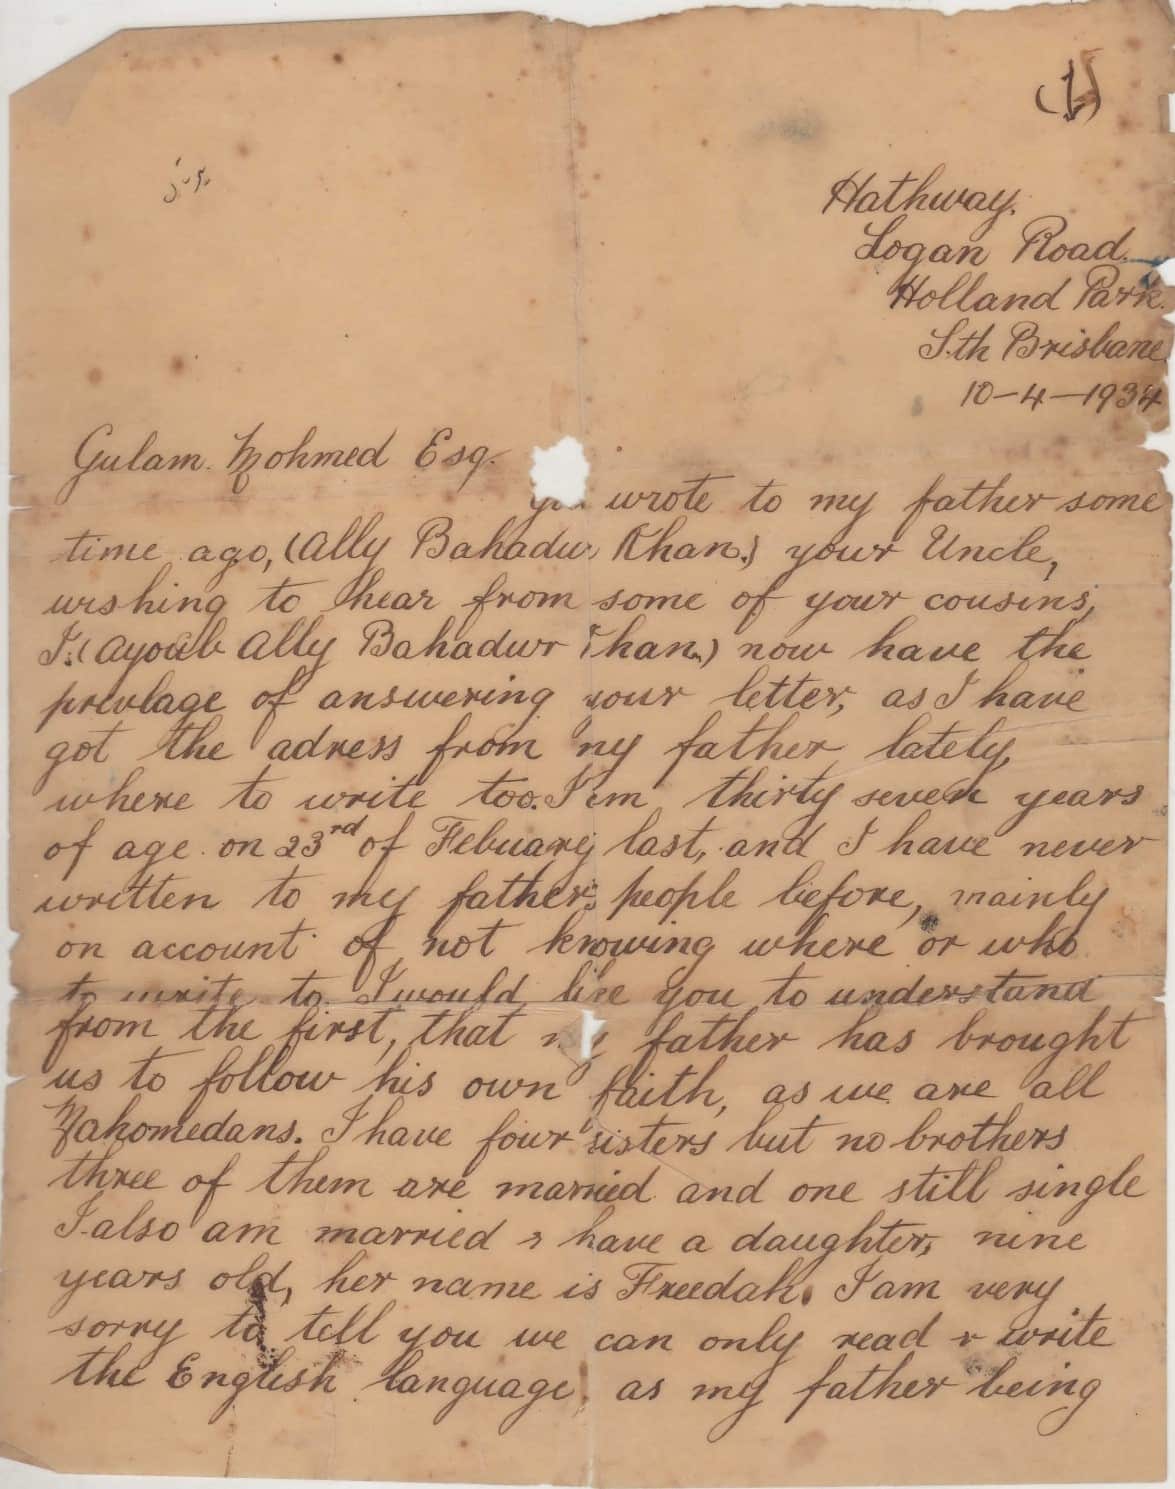 (1)
Hathway.
Logan Road.
Holland Park.
S.th Brisbane
10-4-1934
Gulam. Mohmed Esq.
you wrote to my father some
time ago, (Ally Bahadur Khan.) your Uncle,
wishing to hear from some of your cousins,
I.(Ayoub Ally Bahadur Khan.) now have the
prevlage of answering your letter, as I have
got the adress from my father lately,
where to write too. I am thirty seven years
of age on 23rd of Febuary last, and I have never
written to my fathers people before, mainly
on account of not knowing where or who
to write to. I would like you to understand
from the first, that my father has brought
us to follow his own faith, as we are all
Mahomedans. I have four sisters but no brothers
three of them are married and one still single
I also am married & have a daughter, nine
years old, her name is Freedah. I am very
sorry to tell you we can only read & write
the English language, as my father being